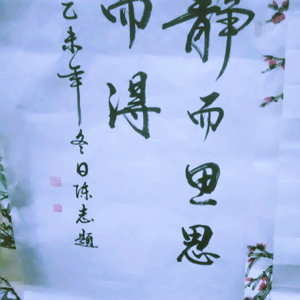 静而思思
而得
乙未年冬日陈志题